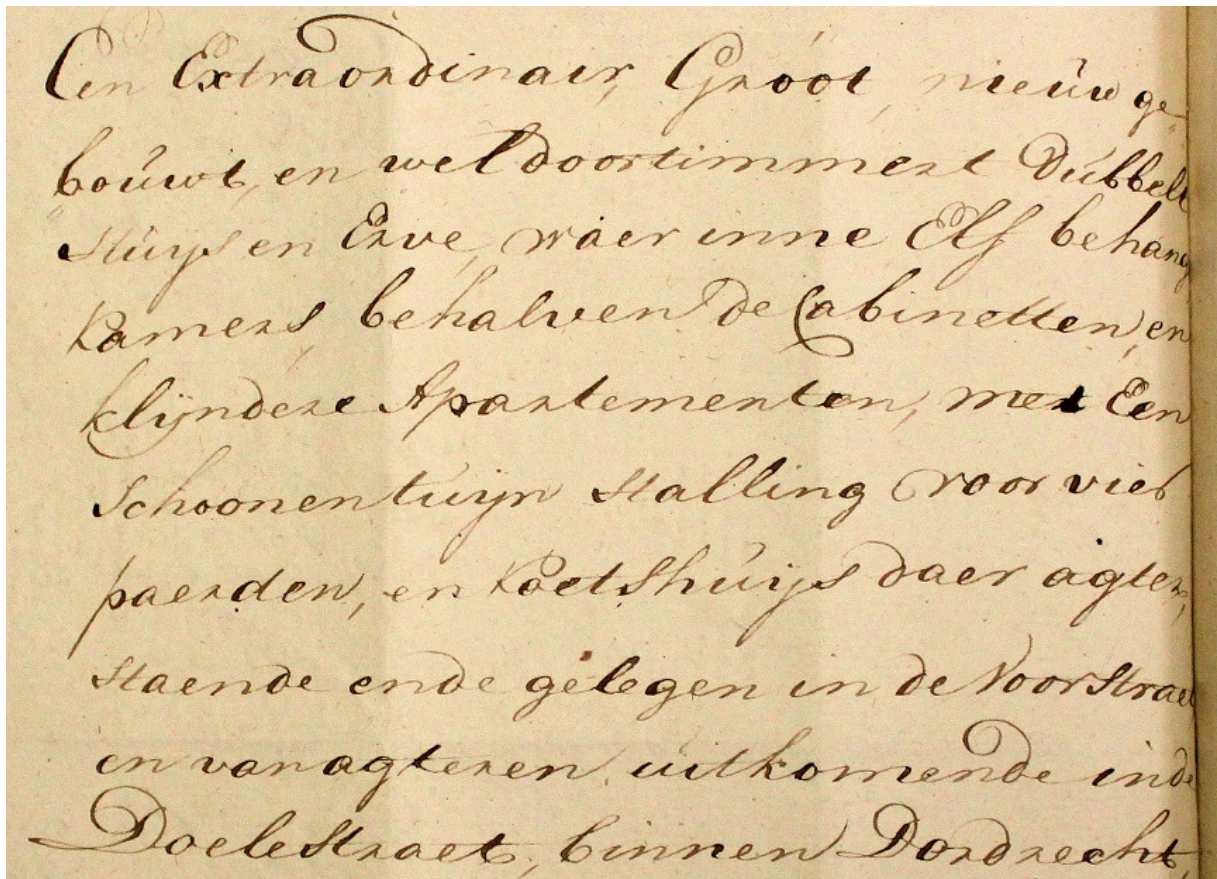 Een Extraordinair, Groot, nieuw ge„
bouwt, en wel doortimmert Dubbelt
Huijs en Erve, waer inne Elf behang
kamers, behalven de Cabinetten, en
klijndere Apartementen, met Een
Schoonen tuijn Stalling voor vier
paerden, en koetshuijs daer agter,
Staende ende gelegen in de Voorstraet
en van agteren uitkomende in de
Doelestraet, binnen Dordrecht,